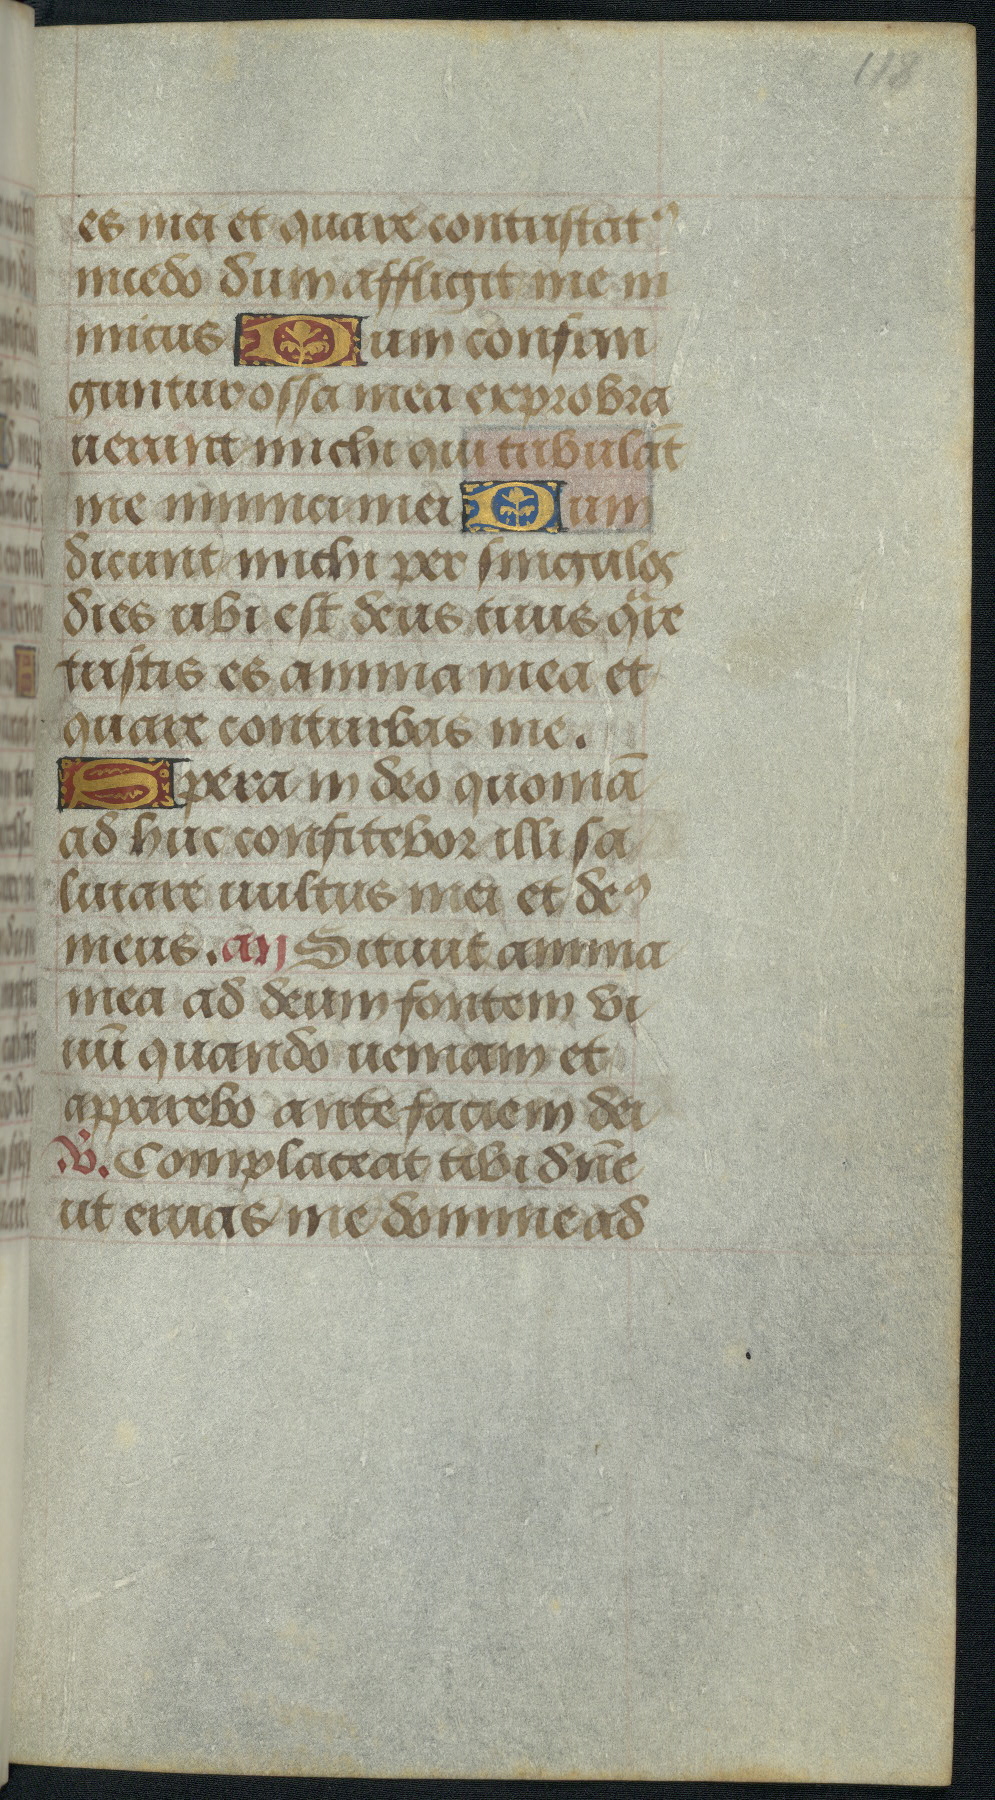 118
es mei et quare contristatꝰ
incedo dum affligit me in
imicus Dum confrin
guntur ossa mea exprobra
uerunt michi qui tribulāt
me inimici mei Dum
dicunt michi per singulos
dies ubi est deus tuus q̄re
tristis es anima mea et
quare conturbas me.
Spera in deo quoniā
ad huc confitebor illi sa
lutare uultus mei et deꝰ
meus. an Sitiuit anima
mea ad deum fontem vi
uū quando ueniam et
apparebo ante faciem dei
V. Complaceat tibi dn̄e
ut eruas me domine ad